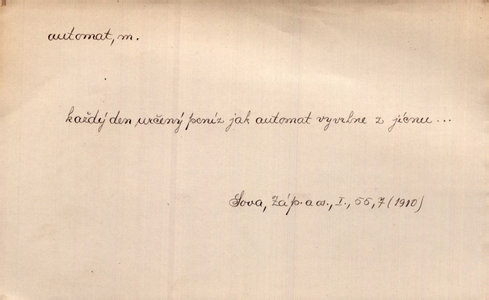 automat, m.
každý den určený peníz jak automat vyvrhne z jícnu...
Sova, Záp. a w., I., 55, 7 (1910)